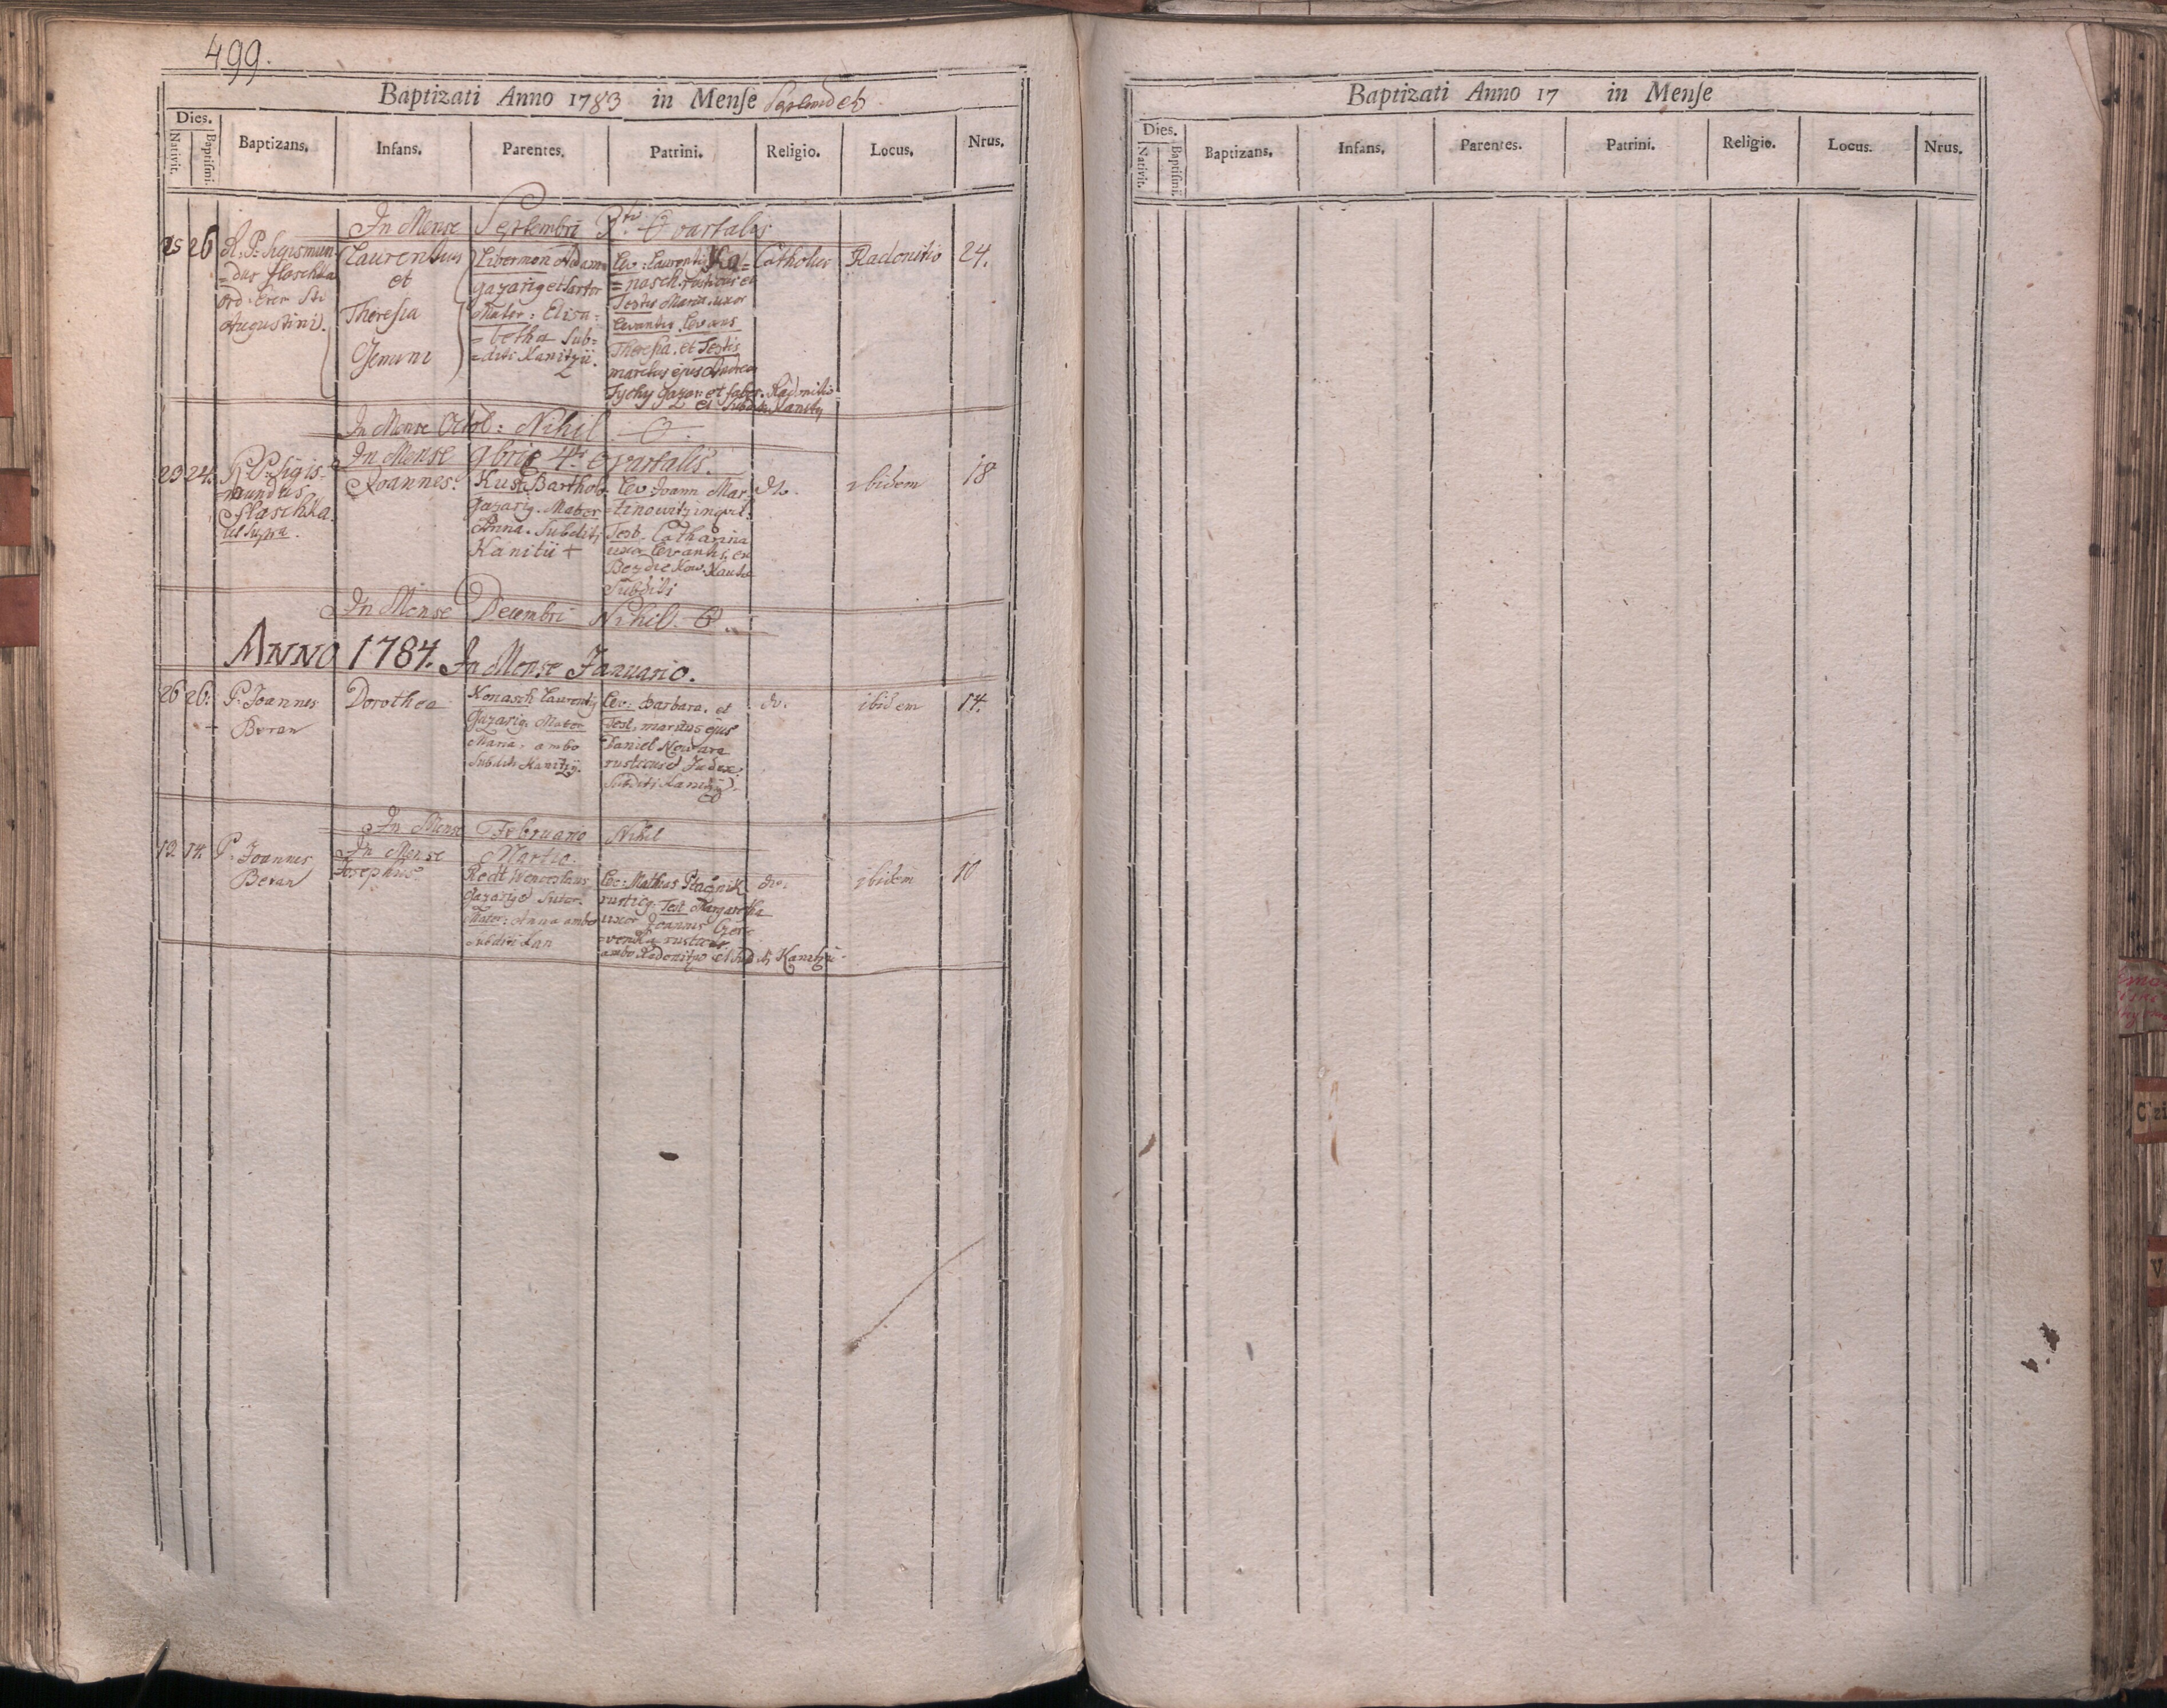 499.
Baptizati Anno 1783 in Menſe
Dies.
Nativit.
Baptiſmi.
Baptizans.
Infans.
Parentes.
Patrini.
Religio.
Locus.
Nrus.
In Mense Septembri
25 26
R. P. Sigismun=
=dus Flaschka
Ord. Erem. Sti
Augustini.
Laurentius
et
Theresia
Gemini
Libermon Adam
gazarig et sartor
Mater: Elisa=
=betha Sub=
=diti Kanitzii.
Lev: Laurentij Ko=
=nasch rusticus et
Testis Maria uxor
Levantis. Levans
Theresia. et Testis
maritus ejus Andreas
Tychy gazar. et faber. Radonitio
et Subditi Kanitz
Catholica
Radonitio
24.
In Mense Octob: Nihil
In Mense 9bris 4
23 24.
R. P. Sigis=
=mundus
Flaschka
ut Supra.
Joannes.
Kust Barthol
gazarig. Mater
Anna. Subditi
Kanitii +
Lev. Joann Mar=
=tinowitz inquil.
Test. Catharina
uxor Levantis, ex
Subditi
do.
ibidem
18
In Mense Decembri Nihil.
ANNO 1784. In Mense Januario.
26 26.
P. Joannes
+ Beran
Dorothea
Konasch Laurentij
gazarig. Mater
Maria, ambo
Subditi Kanitzij.
Lev: Barbara. et
Test. maritus ejus
Daniel Nowara
rusticus et Judex
Subditi Kanitzij
do.
ibidem
14.
In Mense Februario Nihil
In Mense Martio.
13 14.
P. Joannes
Beran
Josephus
Redt Wenceslaus
gazarig et Sutor.
Mater: Anna ambo
Subditi Kan
Lev: Mathias Ptačnik
rustic9. Test. Margaretha
uxor Joannis Czer=
=venka rustici
ambo Radonitzio et Subditi Kanitzii
do.
ibidem
10
Baptizati Anno 17 in Menſe
Dies.
Nativit.
Baptiſmi.
Baptizans.
Infans.
Parentes.
Patrini.
Religio.
Locus.
Nrus.